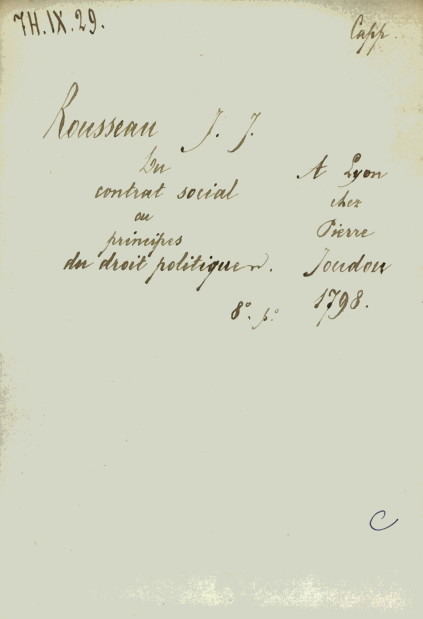 7H.IX.29.
Capp.
Rousseau J. J.
Du
contrat social
ou
principes
du droit politiquen.
A Lyon
chez
Pierre
Joudou
1798.
8° p.°
C